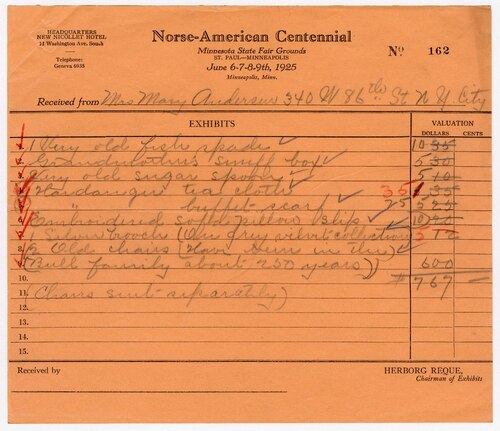 HEADQUARTERS
NEW NICOLLET HOTEL
11 Washington Ave. South
Telephone:
Geneva 6935
Norse-American Centennial
Minnesota State Fair Grounds
ST. PAUL—MINNEAPOLIS
June 6-7-8-9th, 1925
Minneapolis, Minn.
No 162
Received from Mrs Mary Anderson 340 W 86th St N Y. City
EXHIBITS
VALUATION
DOLLARS CENTS
1 Very old fish spade
Grandmother's snuff box
Very old sugar spoon
Hardanger tea cloth 35
" buffet scarf 25
Embroidered sofa pillow slip
Silver brooch (One grey velvet collection)
2 Old chairs (Have been in the)
(Bull family about 250 years) 600
10. # 767
11. (Chairs sent separately)
12.
13.
14.
15.
Received by
HERBORG REQUE,
Chairman of Exhibits